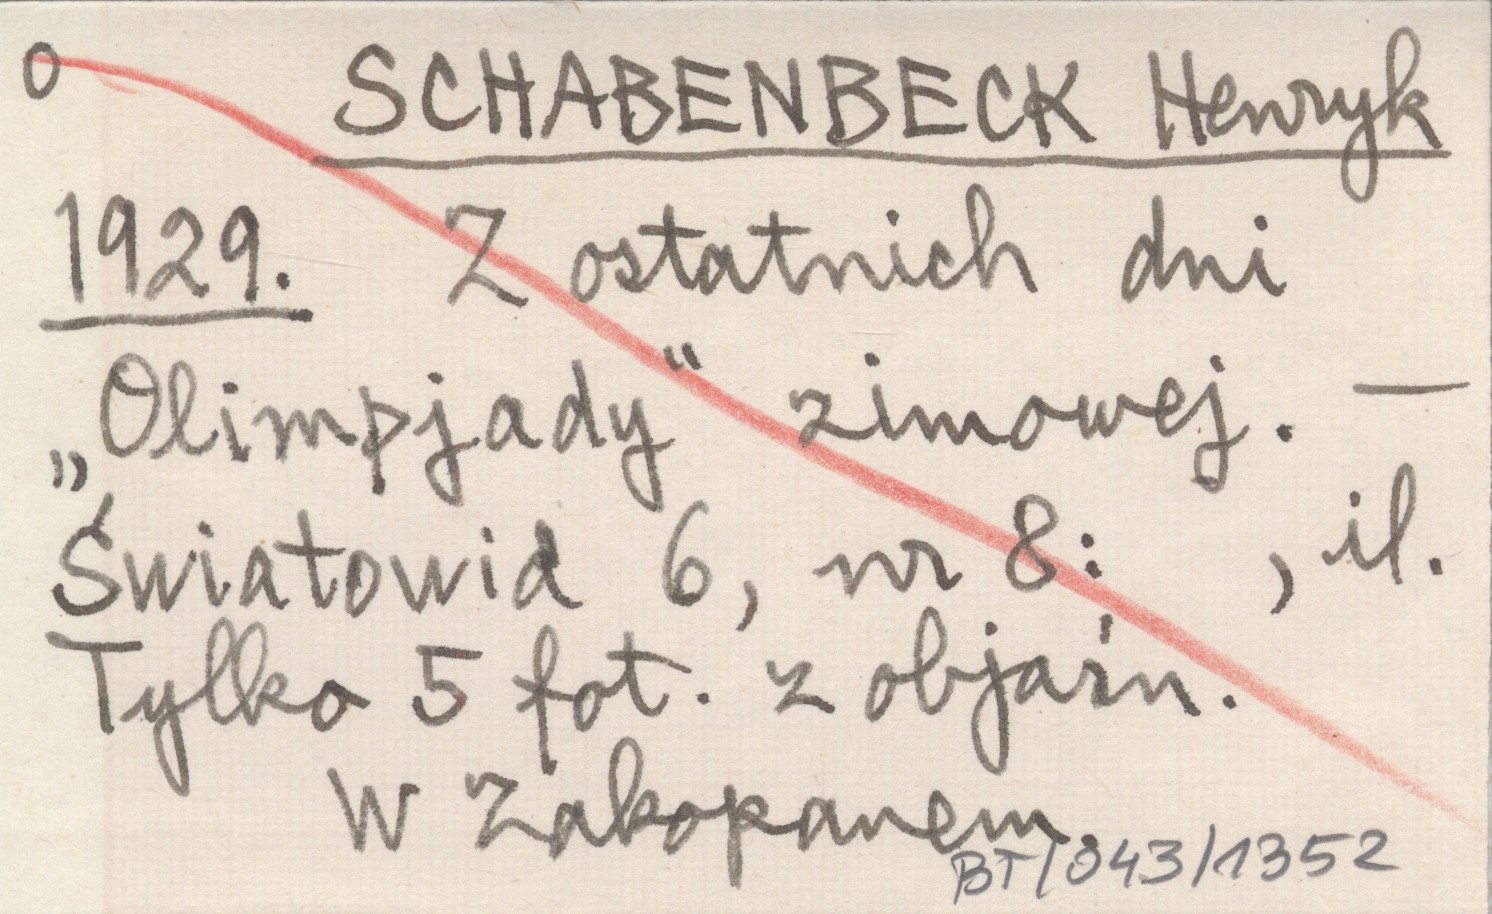 O SCHABENBECK Henryk
1929. Z ostatnich dni
„Olimpjady" zimowej. —
Światowid 6, nr 8: , il.
Tylko 5 fot. z objaśn.
W Zakopanem.
BT/043/1352